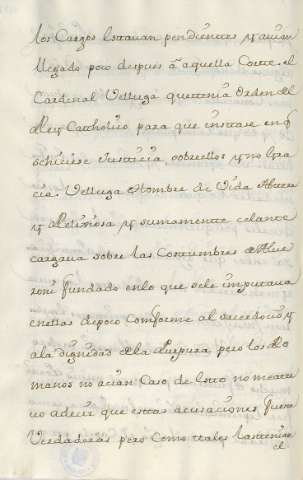 los Cargos estauan pendientes y auian
llegado poco despues à aquella Corte el
Cardenal Velluga que tenia orden del
Rey Cattholico para que instase en q
se hiciese Justicia, sobre ellos y no gra
cia. Velluga Hombre de Vida Austera
y Religiosa y sumamente celante
cargaua sobre las Costumbres de Albe
roni fundado en lo que se le imputaua
en ellas de poco Comforme al sacerdocio y
a la dignidad de la Purpura pero los Ro
manos no acian Caso de esto no me atre
uo a decir que estas acusaciones fueran
Verdaderas pero como tales las tenia
el